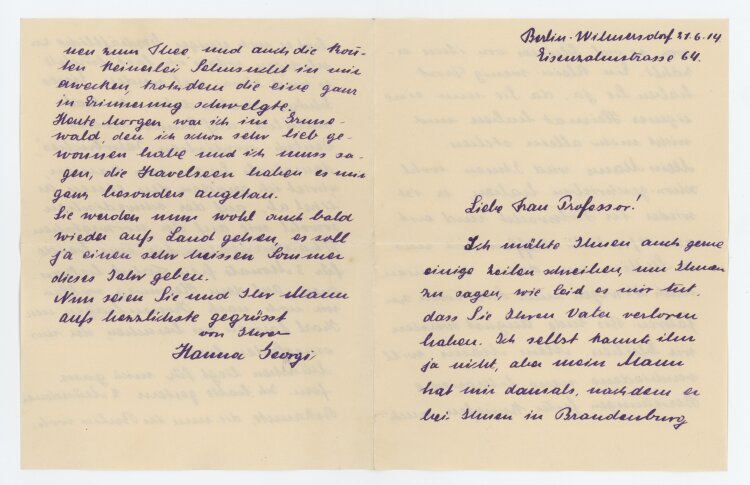 Berlin-Wilmersdorf 21.6.14
Eisenzahnstrasse 64.
Liebe Frau Professor!
Ich möchte Ihnen auch gerne
einige Zeilen schreiben, um Ihnen
zu sagen, wie leid es mir tut,
dass Sie Ihren Vater verloren
haben. Ich selbst kannte ihn
ja nicht, aber mein Mann
hat mir damals, nachdem er
bei Ihnen in Brandenburg
nen zum Thee und auch die
keinerlei Sehnsucht in mir
erwecken, trotzdem die eine ganz
in Erinnerung schwelgte.
Heute Morgen war ich im Grune-
wald, den ich schon sehr lieb ge-
wonnen habe und ich muss sa-
gen, die Havelseen haben es mir
ganz besonders angetan.
Sie werden nun wohl auch bald
wieder aufs Land gehen, es soll
ja einen sehr heissen Sommer
dieses Jahr geben.
Nun seien Sie und Ihr Mann
aufs herzlichste gegrüsst
von Ihrer
Hanna Georgi